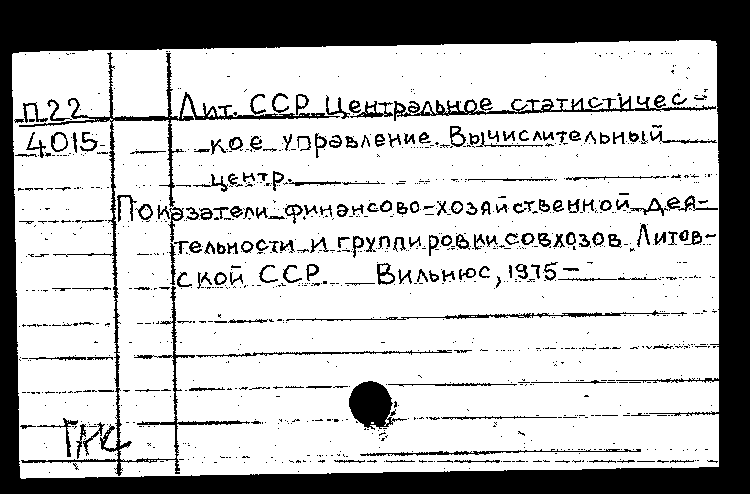 П22 Лит. ССР Центральное статистичес-
4015 кое управление. Вычислительный
центр.
Показатели финансово-хозяйственной дея-
тельности и группировки совхозов Литов-
ской ССР. Вильнюс, 1975-
ГАК